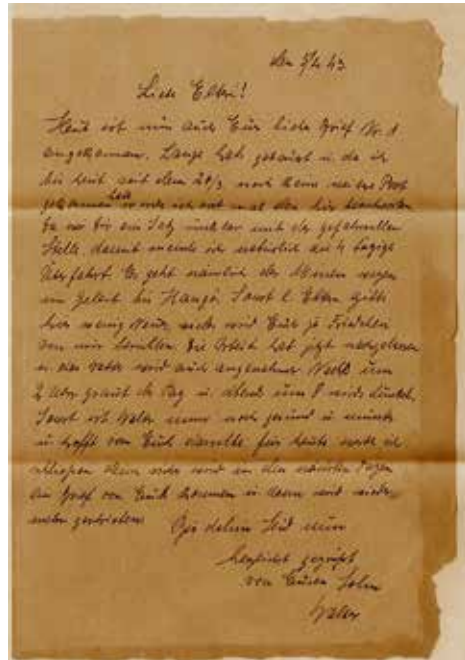 den 5/4 43
Liebe Eltern!
Heut ist nun auch Eur liebe Brief Nr. 1
angekommen. Lange hat gedauert u. da ich
bis heut seit dem 24/3 noch keine weitere Post
bekommen
da war Dir ein Satz unklar mit der gefahrvollen
Stelle, damit meinte ich natürlich die 4 tägige
Überfahrt. Es geht nämlich der Minen wegen
im Geleit bis Hangö. Sonst l. Eltern gibts
hier wenig Neues, wird Euch ja Friedchen
von mir. Die Arbeit hat jetzt nachgelassen
u. das Wetter wird auch angenehmer. Nachts um
2 Uhr graut der Tag u. abends um 8 wirds dunkel.
Sonst ist Walter immer noch gesund u. munter
u. hofft von Euch dasselbe. Für heute werde ich
schliessen denn wird in den nächsten Tagen
ein Brief von Euch kommen u. dann wird wieder
mehr geschrieben.
Seid nun
herzlichst gegrüßt
von Euren Sohn
Walter